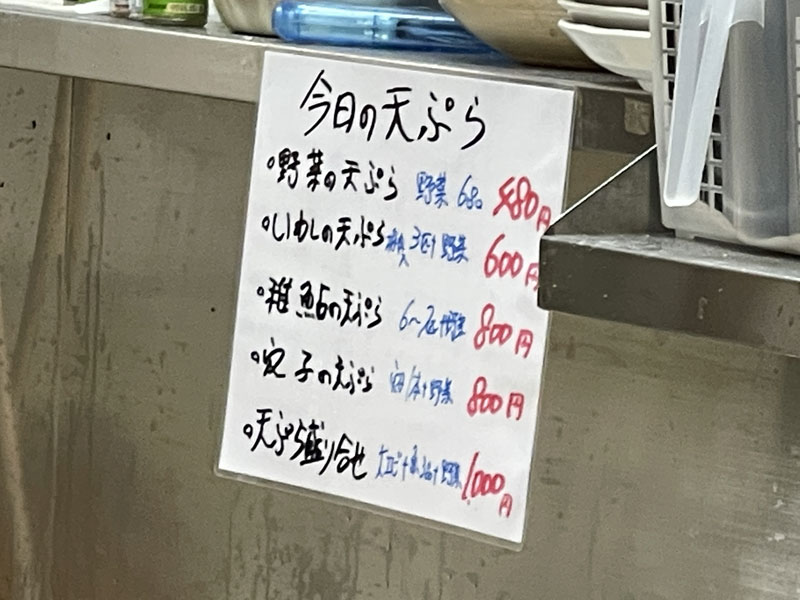 今日の天ぷら
•野菜の天ぷら 野菜 6品 580円
•いわしの天ぷら 3回 野菜 600円
•稚鮎の天ぷら 6〜7 野菜 800円
•穴子の天ぷら 1本+野菜 800円
•天ぷら盛り合せ 大エビ+ +野菜 1,000円